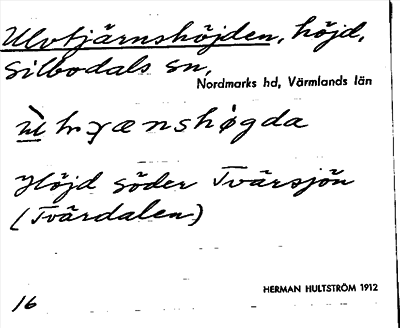 Ulvtjärnshöjden, höjd,
Silbodals sn,
Nordmarks hd, Värmlands län
Höjd söder Tvärsjön
(Tvärdalen)
HERMAN HULTSTRÖM 1912
16